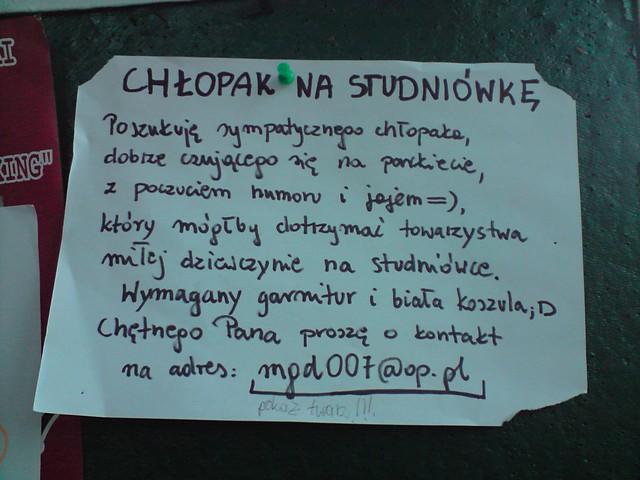 CHŁOPAK NA STUDNIÓWKĘ
Poszukuję sympatycznego chłopaka,
dobrze czującego się na parkiecie,
z poczuciem humoru i jajem=),
który mógłby dotrzymać towarzystwa
miłej dziewczynie na studniówce.
Wymagany garnitur i biała koszula;D
Chętnego Pana proszę o kontakt
na adres: mgd007@op.pl
pokaż twarz!!!
KING"